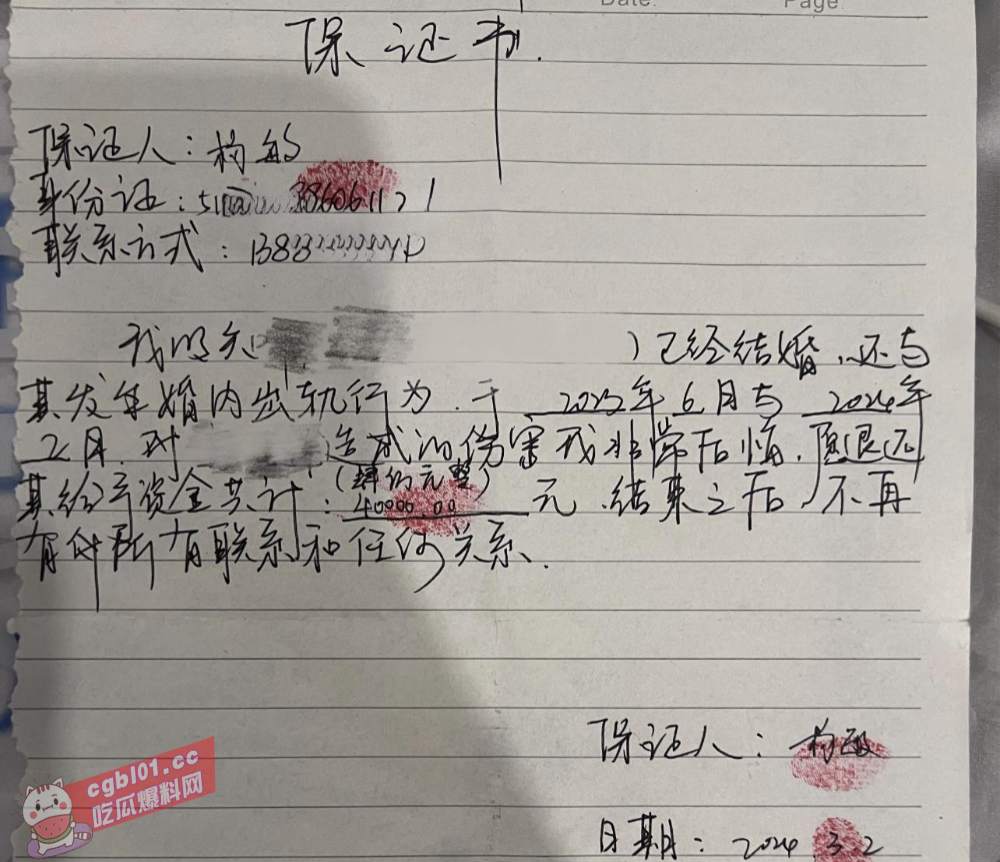 Date.
Page
保证书.
保证人:
身份证:
联系方式:
我明知 ) 已经结婚,还与
其发生婚内出轨行为.于 2023年6月与 2024年
2月 对 造成的伤害我非常后悔.愿退还
(肆万元整)
其给予资金共计: 40000.00 元.结束之后,不再
有 所有联系和任何关系.
保证人:
日期: 2024 3.2
cgbl01.cc
吃瓜爆料网